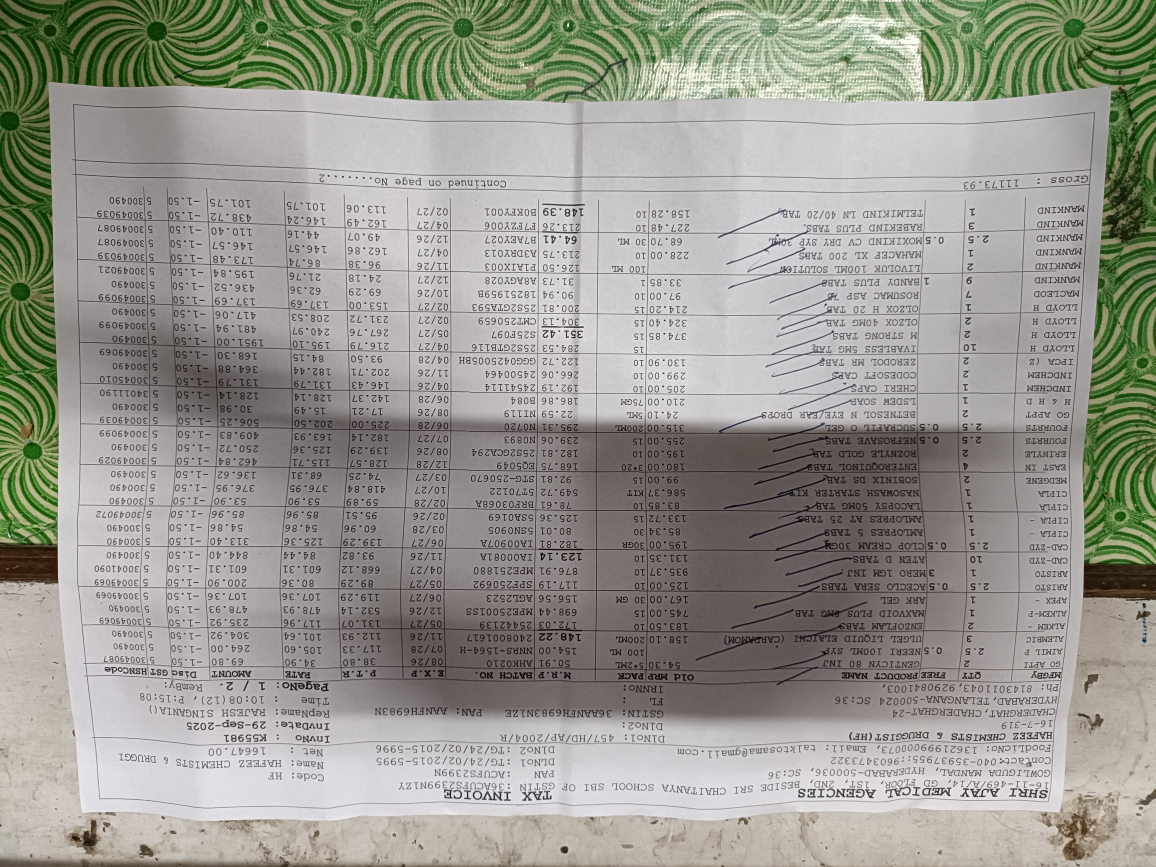 SHRI AJAY MEDICAL AGENCIES TAX INVOICE
16-11-469/A/14, GD FLOOR, 1ST, 2ND, BESIDE SRI CHAITANYA SCHOOL OF SRI GSTIN :36ACUFS2399N1ZY Code: HF
GOWLIGUDA MANDAL, HYDERABAD-500036, SC:36 PAN :ACUFS2399N Name: HAFEEZ CHEMISTS & DRUGGI
Contact:040-35937955::9603473322 DLNO1 :TG/24/02/2015-5995 Net : 16647.00
FoodLicNo: 13621999000073, Email: talktosama@gmail.com DLNO2 :TG/24/02/2015-5996
HAFEEZ CHEMISTS & DRUGGIST(HF) DLNO1:457/HD/AP/2004/R InvNo : K55981
16-7-319 DLNO2: Invbate: 29-Sep-2025
CHADERGHAT,CHADERGHAT-24 GSTIN: 36AANFH6983N1ZE PAN: AANFH6983N RepName: RAJESH SINGANIA()
HYDERABAD, TELANGANA-500024 SC:36 FL : Time : 10:08(12), P:15:08
Ph: 8143011043,9290841003, IRNO: PageNo: 1 / 2. RemBy:
MFGBY QTY FREE PRODUCT NAME Old MRP PACK M.R.P BATCH NO. E.X.P P.T.R RATE AMOUNT Disc GST HSNcode
GO APTI 2 GENTICYN 80 INJ 54.30 5*2ML 50.91 AHK0210 08/26 38.80 34.90 69.80 -1.50 5 30049087
AIMIL P 2.5 0.5 NEERI 100ML SYP 100 ML 154.00 NNRS-1564-H 07/28 117.33 105.60 264.00 -1.50 5 300490
ALEMBIC 3 ULGEL LIQUID ELAICHI (CARDAMOM) 158.10 200ML 148.22 2408001617 11/26 112.93 101.64 304.92 -1.50 5 300490
ALKEM - 2 ENZOFLAM TABS 183.50 10 172.03 25442239 05/27 131.07 117.96 235.92 -1.50 5 30049069
ALKEM-P 1 MAXVOID PLUS 8MG TAB 745.00 15 698.44 MPE25001SS 12/26 532.14 478.93 478.93 -1.50 5 300490
APEX - 1 ARK GEL 167.00 30 GM 156.56 AGL2523 06/27 119.29 107.36 107.36 -1.50 5 30049069
ARISTO 2.5 0.5 ACECLO SERA TABS 125.00 10 117.19 SPE250692 05/27 89.29 80.36 200.90 -1.50 5 30049069
ARISTO 1 3 MERO 1GM INJ 935.37 10 876.91 MPE251880 04/27 668.12 601.31 601.31 -1.50 5 30041090
CAD-ZYD 10 ATEN D TABS 131.35 10 123.14 IA00081A 11/26 93.82 84.44 844.40 -1.50 5 300490
CAD-ZYD 2.5 0.5 CLOP CREAM 30GM 195.00 30GR 182.81 IA00907A 06/27 139.29 125.36 313.40 -1.50 5 300490
CIPLA - 1 AMLOPRES 5 TABS 85.34 30 80.01 5SN0905 03/28 60.96 54.86 54.86 -1.50 5 300490
CIPLA - 1 AMLOPRES AT 25 TABS 133.72 15 125.36 5SA0169 02/26 95.51 85.96 85.96 -1.50 5 30049072
CIPLA 1 LACOPSY 50MG TAB 83.85 10 78.61 BRF0308A 02/28 59.89 53.90 53.90 -1.50 5 300490
CIPLA 1 NASOWASH STARTER KIT 586.37 KIT 549.72 ST70122 10/27 418.84 376.95 376.95 -1.50 5 300490
MEDGENE 2 ROBINIX DS TAB 99.00 15 92.81 STG-250670 03/27 74.25 68.31 136.62 -1.50 5 300490
EAST IN 4 ENTEROQUINOL TABS 180.00 3*20 168.75 EQ5049 12/28 128.57 115.71 462.84 -1.50 5 30049029
ERINYLE 2 ROZNYLE GOLD TAB 195.00 10 182.81 2S2GCA294 08/26 139.29 125.36 250.72 -1.50 5 300490
FOURRTS 2.5 0.5 NEROSAVE TABS 255.00 15 239.06 N0893 07/27 182.14 163.93 409.83 -1.50 5 30049099
FOURRTS 2.5 0.5 SUCRAFIL O GEL 315.00 200ML 295.31 N0720 06/28 225.00 202.50 506.25 -1.50 5 30049039
GO APPT 2 BETNESOL N EYE/EAR DROPS 24.10 5ML 22.59 NI119 08/26 17.21 15.49 30.98 -1.50 5 300490
H & H D 1 LSDEW SOAP 210.00 75GM 186.86 B084 06/28 142.37 128.14 128.14 -1.50 5 34011190
INDCHEM 1 CHERI CAPS 205.00 10 192.19 24541114 04/26 146.43 131.79 131.79 -1.50 5 30045010
INDCHEM 2 CODESOFT CAPS 299.00 10 266.06 24500464 11/26 202.71 182.44 364.88 -1.50 5 300490
IPCA (Z 2 ZERODOL MR TABS 130.90 10 122.72 GGG04254005BH 04/28 93.50 84.15 168.30 -1.50 5 30049069
LLOYD H 10 IVABLESS 5MG TAB 15 284.53 2S2GTB116 04/27 216.79 195.10 1951.00 -1.50 5 300490
LLOYD H 2 M STRONG TABS 374.85 15 351.42 S25F097 05/27 267.76 240.97 481.94 -1.50 5 30049099
LLOYD H 2 OLZOX 40MG TAB 324.40 15 304.13 CMT250659 02/27 231.72 208.53 417.06 -1.50 5 300490
LLOYD H 1 OLZOX H 20 TAB 214.20 15 200.81 2S2GTA2593 02/27 153.00 137.69 137.69 -1.50 5 300490
MACLEOD 7 ROSUMAC ASP 97.00 10 90.94 18251959B 10/26 69.29 62.36 436.52 -1.50 5 30049099
MANKIND 9 1 BANDY PLUS TABS 33.85 1 31.73 A8AGY028 12/27 24.18 21.76 195.84 -1.50 5 30049021
MANKIND 2 LIVOLUK 100ML SOLUTION 100 ML 126.50 P1AIX003 11/26 96.38 86.74 173.48 -1.50 5 30049039
MANKIND 1 MAHACEF XL 200 TABS 228.00 10 213.75 A3DRY013 04/27 162.86 146.57 146.57 -1.50 5 30049087
MANKIND 2.5 0.5 MOXIKIND CV DRY SYP 30ML 68.70 30 ML 64.41 B7AEY027 12/26 49.07 44.16 110.40 -1.50 5 30049087
MANKIND 3 RABEKIND PLUS TABS 227.48 10 213.26 F7FZY006 04/27 162.49 146.24 438.72 -1.50 5 30049039
MANKIND 1 TELMIKIND LN 40/10/20 TAB 158.28 10 148.39 B0KFY001 02/27 113.06 101.75 101.75 -1.50 5 300490
Gross : 11173.93 Continued on page No.......2